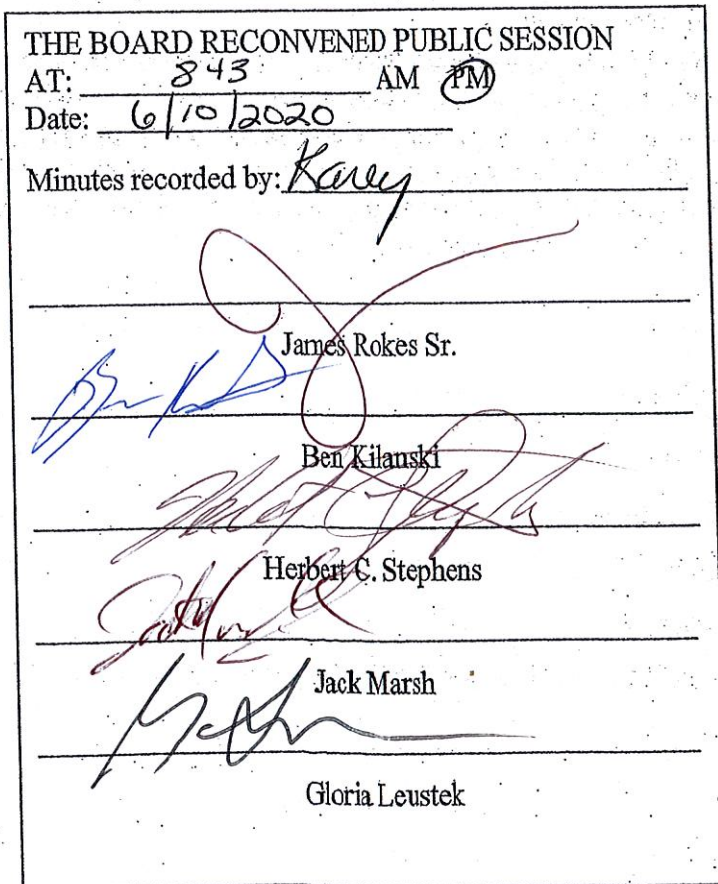 THE BOARD RECONVENED PUBLIC SESSION
AT: 843 AM PM
Date: 6/10/2020
Minutes recorded by:
James Rokes Sr.
Ben Kilanski
Herbert C. Stephens
Jack Marsh
Gloria Leustek